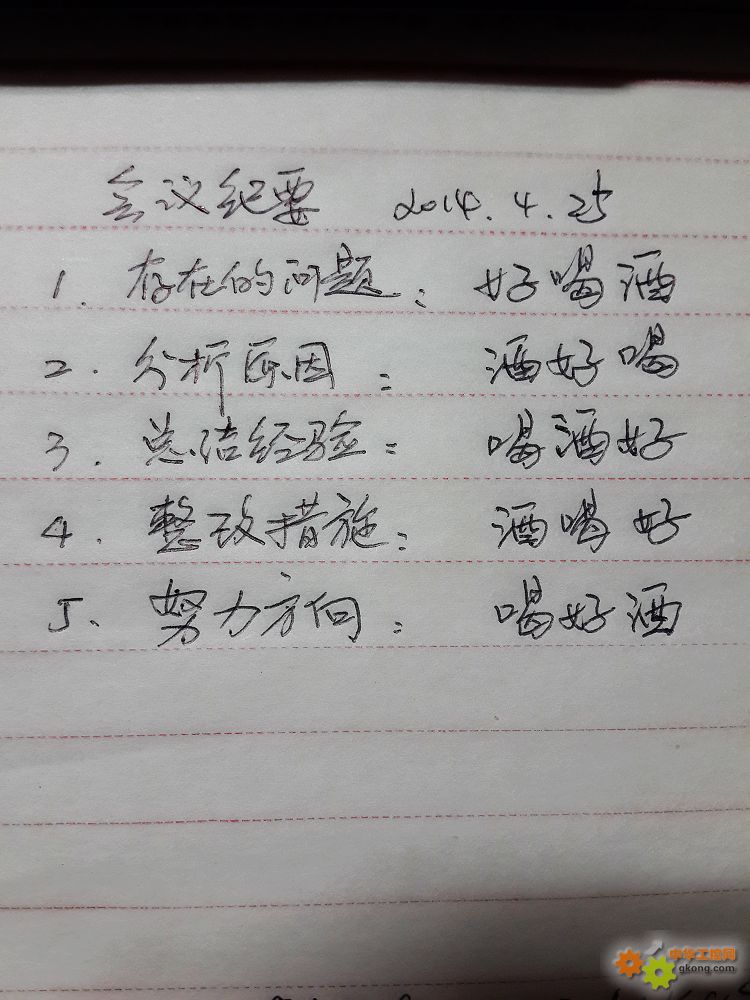 会议纪要 2014.4.25
1. 存在的问题: 好喝酒
2. 分析原因: 酒好喝
3. 总结经验: 喝酒好
4. 整改措施: 酒喝好
5、努力方向: 喝好酒
中华工控网
gkong.com